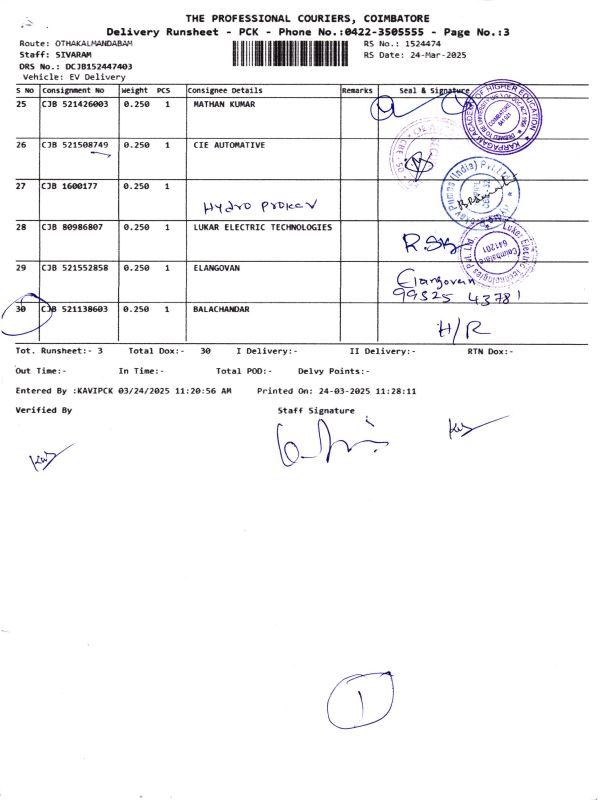 THE PROFESSIONAL COURIERS, COIMBATORE
Delivery Runsheet - PCK - Phone No.:0422-3505555 - Page No.:3
Route: OTHAKALMANDABAM RS No.: 1524474
Staff: SIVARAM RS Date: 24-Mar-2025
DRS No.: DCJB152447403
Vehicle: EV Delivery
S No Consignment No Weight PCS Consignee Details Remarks Seal & Signature
25 CJB 521426003 0.250 1 MATHAN KUMAR
KARPAGAM ACADEMY OF HIGHER EDUCATION
26 CJB 521508749 0.250 1 CIE AUTOMATIVE
27 CJB 1600177 0.250 1
Hydro Prokav
Pumps (India) Pvt. Ltd.
28 CJB 80986807 0.250 1 LUKAR ELECTRIC TECHNOLOGIES
Lukar Electric Technologies Pvt. Ltd.
Coimbatore
641201
29 CJB 521552858 0.250 1 ELANGOVAN
Elangovan
99525 43781
30 CJB 521138603 0.250 1 BALACHANDAR
H/R
Tot. Runsheet:- 3 Total Dox:- 30 I Delivery:- II Delivery:- RTN Dox:-
Out Time:- In Time:- Total POD:- Delvy Points:-
Entered By :KAVIPCK 03/24/2025 11:20:56 AM Printed On: 24-03-2025 11:28:11
Verified By Staff Signature
1